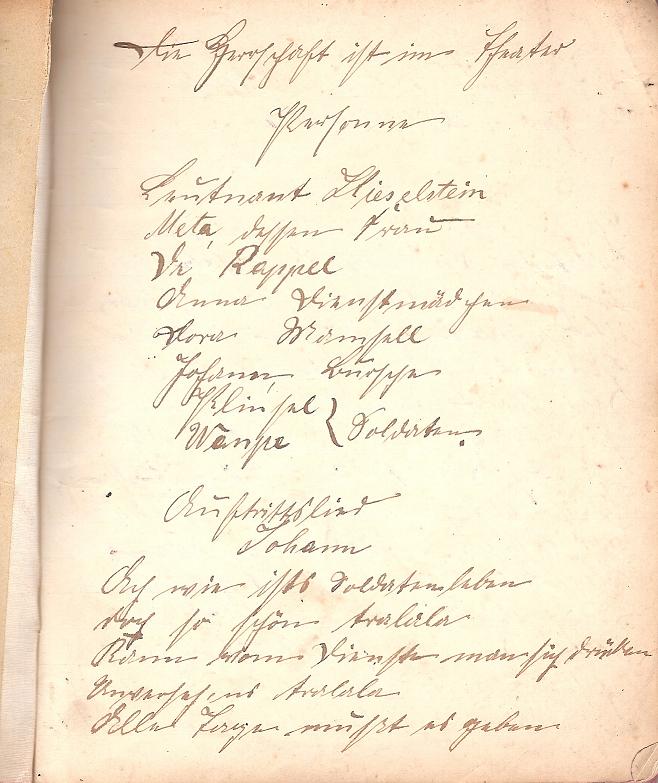 Die Herrschaft ist im Theater
Personne
Leutnant Kieselstein
Meta, dessen Frau
Da Rappel
Anna Dienstmädchen
Dora Mamsell
Johann, Bursche
Soldaten.
Auftrittslied
Johann
Ach wie ists Soldatenleben
doch so schön tralala
Kann vom Dienste man sich drücken
Unversehens tralala
Alle Tage mußt es geben